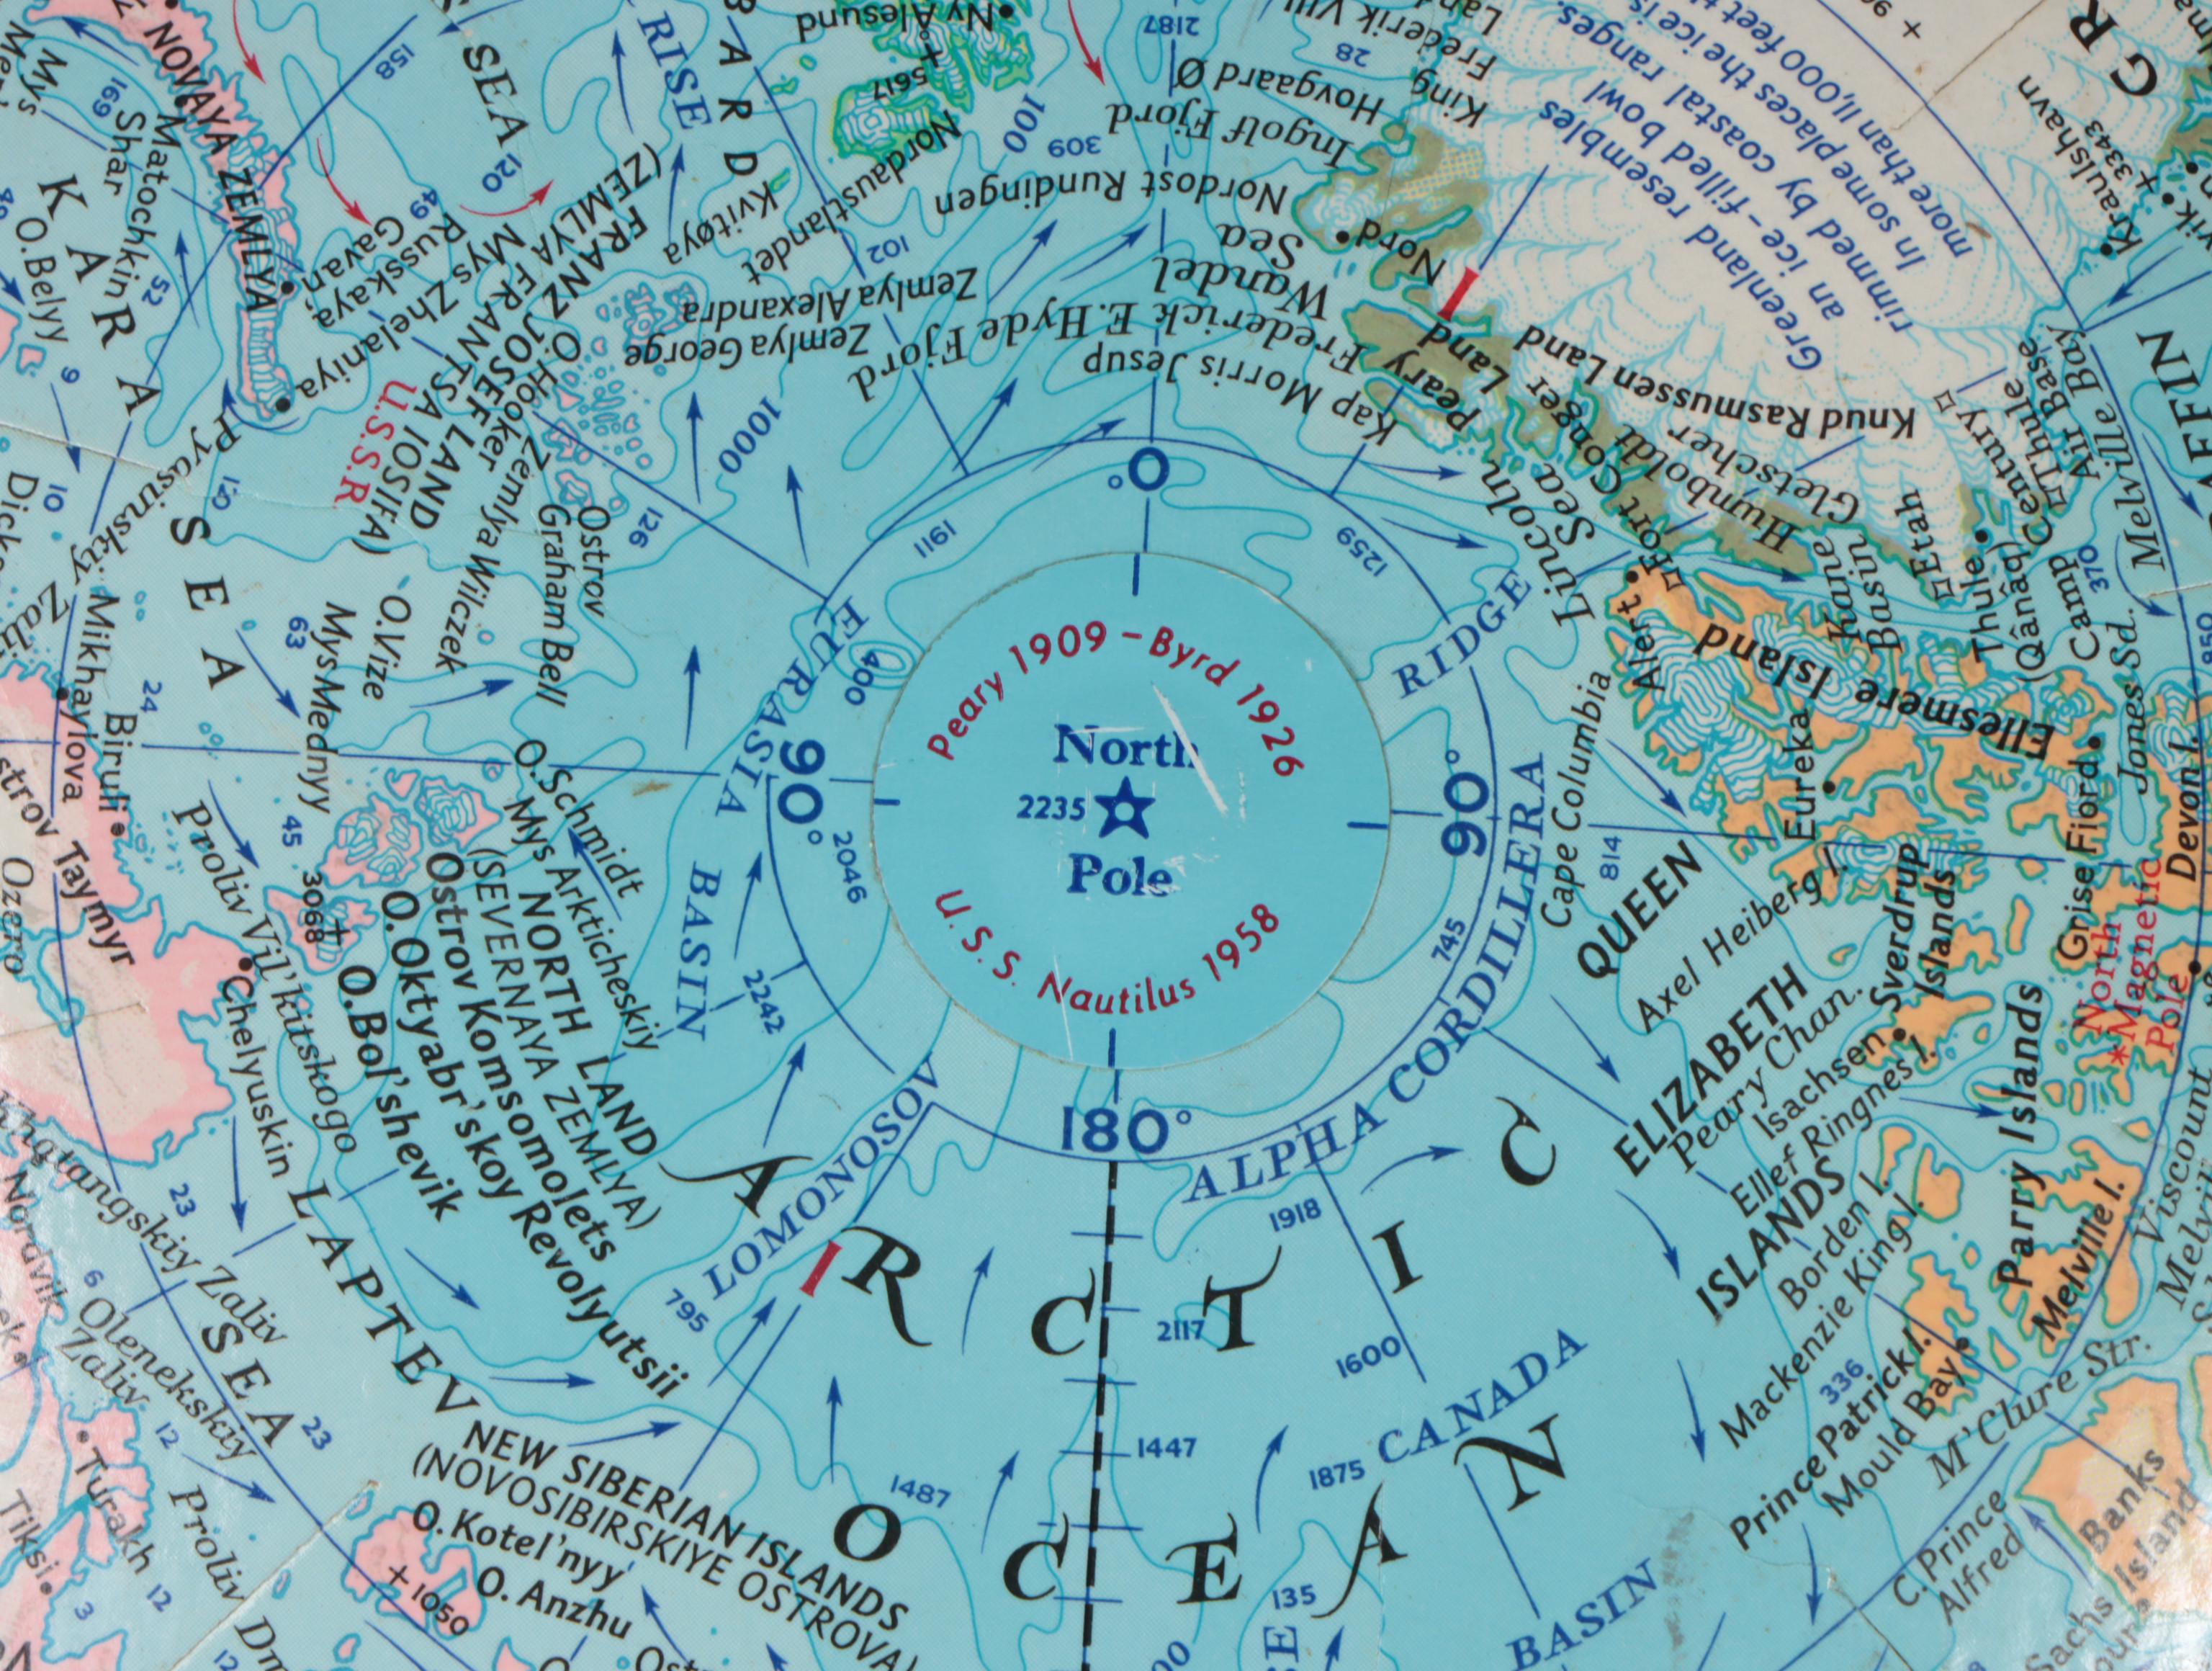 Peary 1909 – Byrd 1926
North
2235
Pole
U.S.S. Nautilus 1958
0°
90°
90°
180°
ARCTIC
OCEAN
EURASIA
BASIN
400
2046
2242
1911
1259
745
RIDGE
LOMONOSOV
795
ALPHA CORDILLERA
1918
2117
1600
1447
1487
1875
135
CANADA
BASIN
I
I
NOVAYA ZEMLYA
Matochkin
Shar
169
158
52
SEA
120
49
RISE
BARD
Ny Alesund
+5617
Nordaustlandet
Kvitøya
102
100
309
2187
28
Russkaya
Gavan'
Mys Zhelaniya
FRANZ JOSEF LAND
(ZEMLYA FRANTSA IOSIFA)
U.S.S.R.
O. Hooker
Zemlya Wilczek
Zemlya Alexandra
Zemlya George
Ostrov
Graham Bell
126
1000
KARA
SEA
O. Belyy
9
10
Pyasinskiy
Mikhaylova
Biruli
24
63
O. Vize
Mys Mednyy
45
3068
Proliv Vil'kitskogo
Chelyuskin
Taymyr
Ozero
O. Schmidt
Mys Arkticheskiy
NORTH LAND
(SEVERNAYA ZEMLYA)
Ostrov Komsomolets
O. Oktyabr'skoy Revolyutsii
O. Bol'shevik
LAPTEV
SEA
23
23
Nordvik
6
Olenekskiy
Zaliv
12
12
Turakh
Tiksi
3
Proliv
NEW SIBERIAN ISLANDS
(NOVOSIBIRSKIYE OSTROVA)
O. Kotel'nyy
+1050
O. Anzhu
King
Frederik VIII
Hovgaard Ø
Ingolf Fjord
Nordost Rundingen
Wandel
Sea
Nord
Frederick E. Hyde Fjord
Kap Morris Jesup
Peary Land
Greenland resembles
an ice-filled bowl
rimmed by coastal ranges.
In some places the ice is
more than 11,000 feet
Knud Rasmussen Land
Humboldt
Gletscher
Fort Conger
Lincoln
Sea
Alert
Cape Columbia
814
Ellesmere Island
Eureka
Kane
Basin
Etah
Thule
(Qânâq)
Camp Century
Thule
Air Base
370
Melville Bay
Kraulshavn
+3343
Jones Sd.
Devon I.
Grise Fiord
North
*Magnetic
Pole
QUEEN
ELIZABETH
ISLANDS
Axel Heiberg I.
Sverdrup
Islands
Peary Chan.
Isachsen
Ellef Ringnes I.
Borden I.
Mackenzie King I.
336
Prince Patrick I.
Mould Bay
Parry Islands
Melville I.
Viscount
M'Clure Str.
C. Prince
Alfred
Banks
Island
Sachs